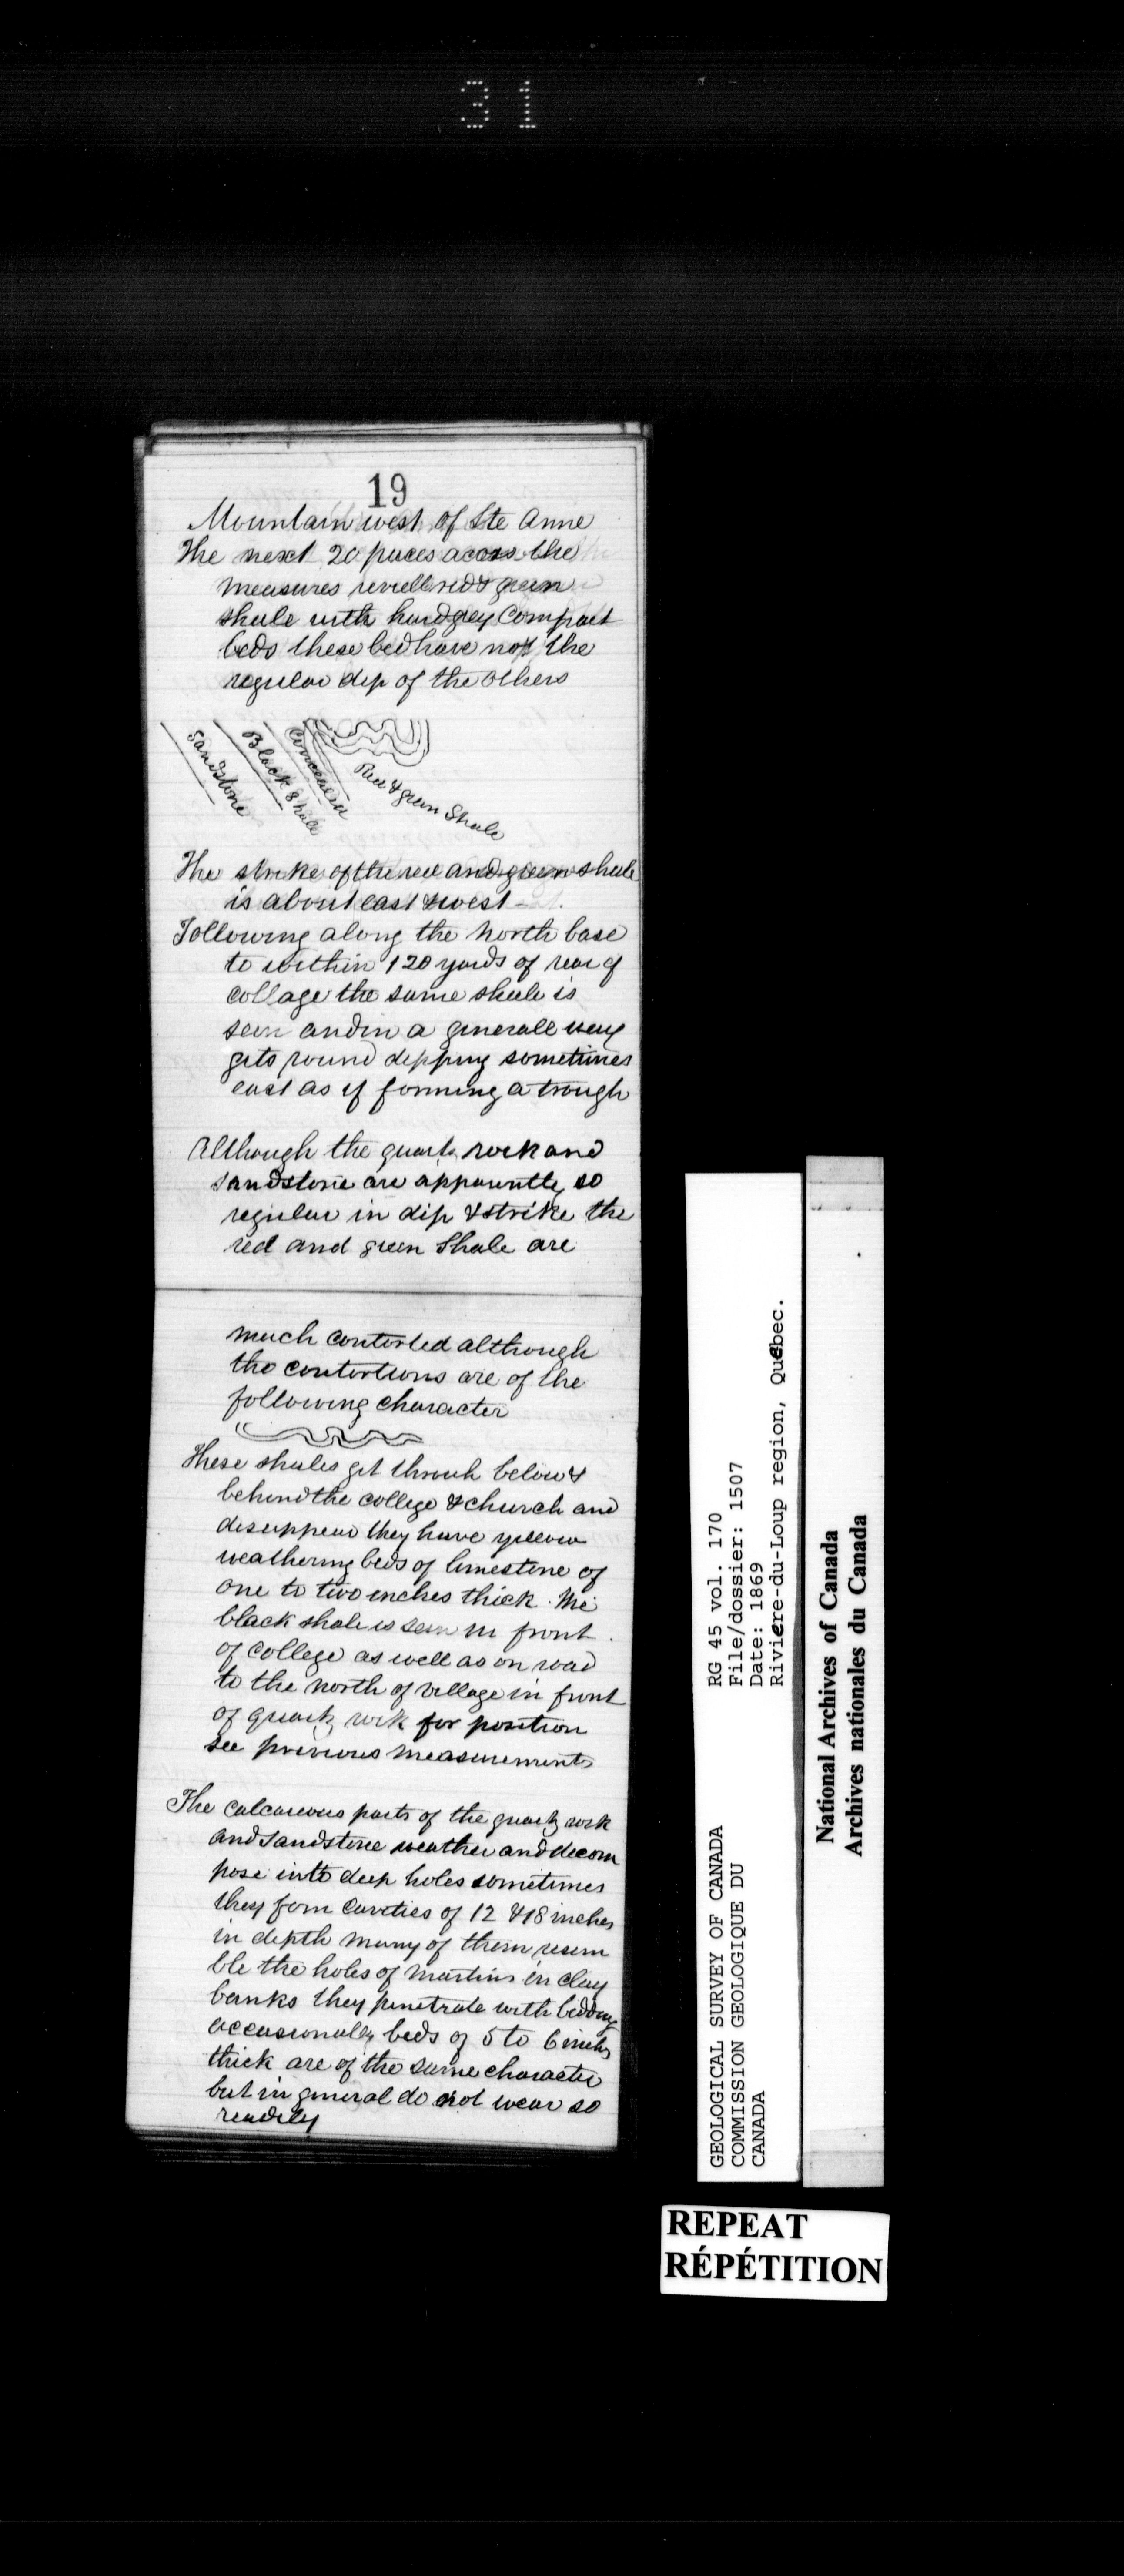 31
19
Mountain west of Ste Anne
The next 20 paces across the
measures revell red & green
shale with hard grey compact
beds these bed have not the
regular dip of the others
Sandstone
Black Shale
Concealed
Red & green Shale
The strike of the red and green shale
is about east & west
Following along the north base
to within 120 yards of rear of
collage the same shale is
seen and in a generall way
gets round dipping sometimes
east as if forming a trough
Although the quartz rock and
sandstone are apparently so
regular in dip & strike the
red and green Shale are
much contorted although
the contortions are of the
following character
These shales get throuh below &
behind the college & church and
disappear they have yellow
weathering beds of limestone of
one to two inches thick. The
black shale is seen in front
of college as well as on road
to the north of village in front
of quartz rock for position
see previous measurements
The calcareous parts of the quartz rock
and sandstone weather and decom
pose into deep holes sometimes
they form cavities of 12 & 18 inches
in depth many of them resem
ble the holes of martins in clay
banks they penetrate with bedding
accasionally beds of 5 to 6 inches
thick are of the same character
but in general do not wear so
readily
GEOLOGICAL SURVEY OF CANADA
COMMISSION GEOLOGIQUE DU
CANADA
RG 45 vol. 170
File/dossier: 1507
Date: 1869
Riviere-du-Loup region, Quebec.
National Archives of Canada
Archives nationales du Canada
REPEAT
RÉPÉTITION